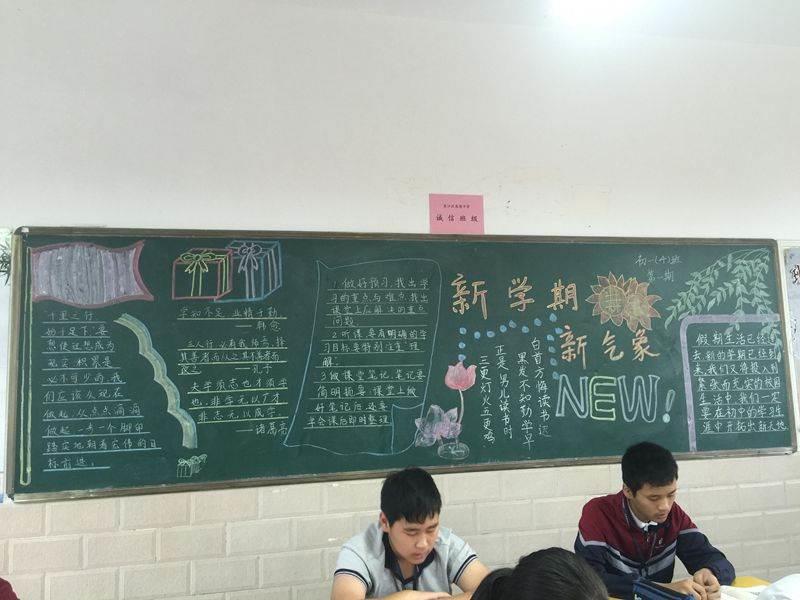 诚信班级
千里之行
始于足下。要
想使这想成为
现实,积累是
必不可少的,我
们应该从现在
做起,从点点滴滴
做起,一步一个脚印
踏实地朝着宏伟的目
标前进。
学知不足,业精于勤
——韩愈
三人行,必有我师焉,择
其善者而从之,其不善者而
改之。 ——孔子
夫学须志也,才须学
也,非学无以广才
非志无以成学。
——诸葛亮
1.做好预习,找出学
习的重点与难点,找出
课堂上应解决的重点
问题
2.听课要有明确的学
习目标,要特别注重理
解。
3.做课堂笔记,笔记要
简明扼要,课堂上做
好笔记后,还要
学会课后即时整理
新学期
新气象
NEW!
初一(4)班
第一期
三更灯火五更鸡
正是男儿读书时
黑发不知勤学早
白首方悔读书迟
假期生活已经过
去,新的学期已经到
来,我们又将投入到
繁忙而充实的校园
生活中,我们一定
要在初中的学习生
涯中开拓出新天地